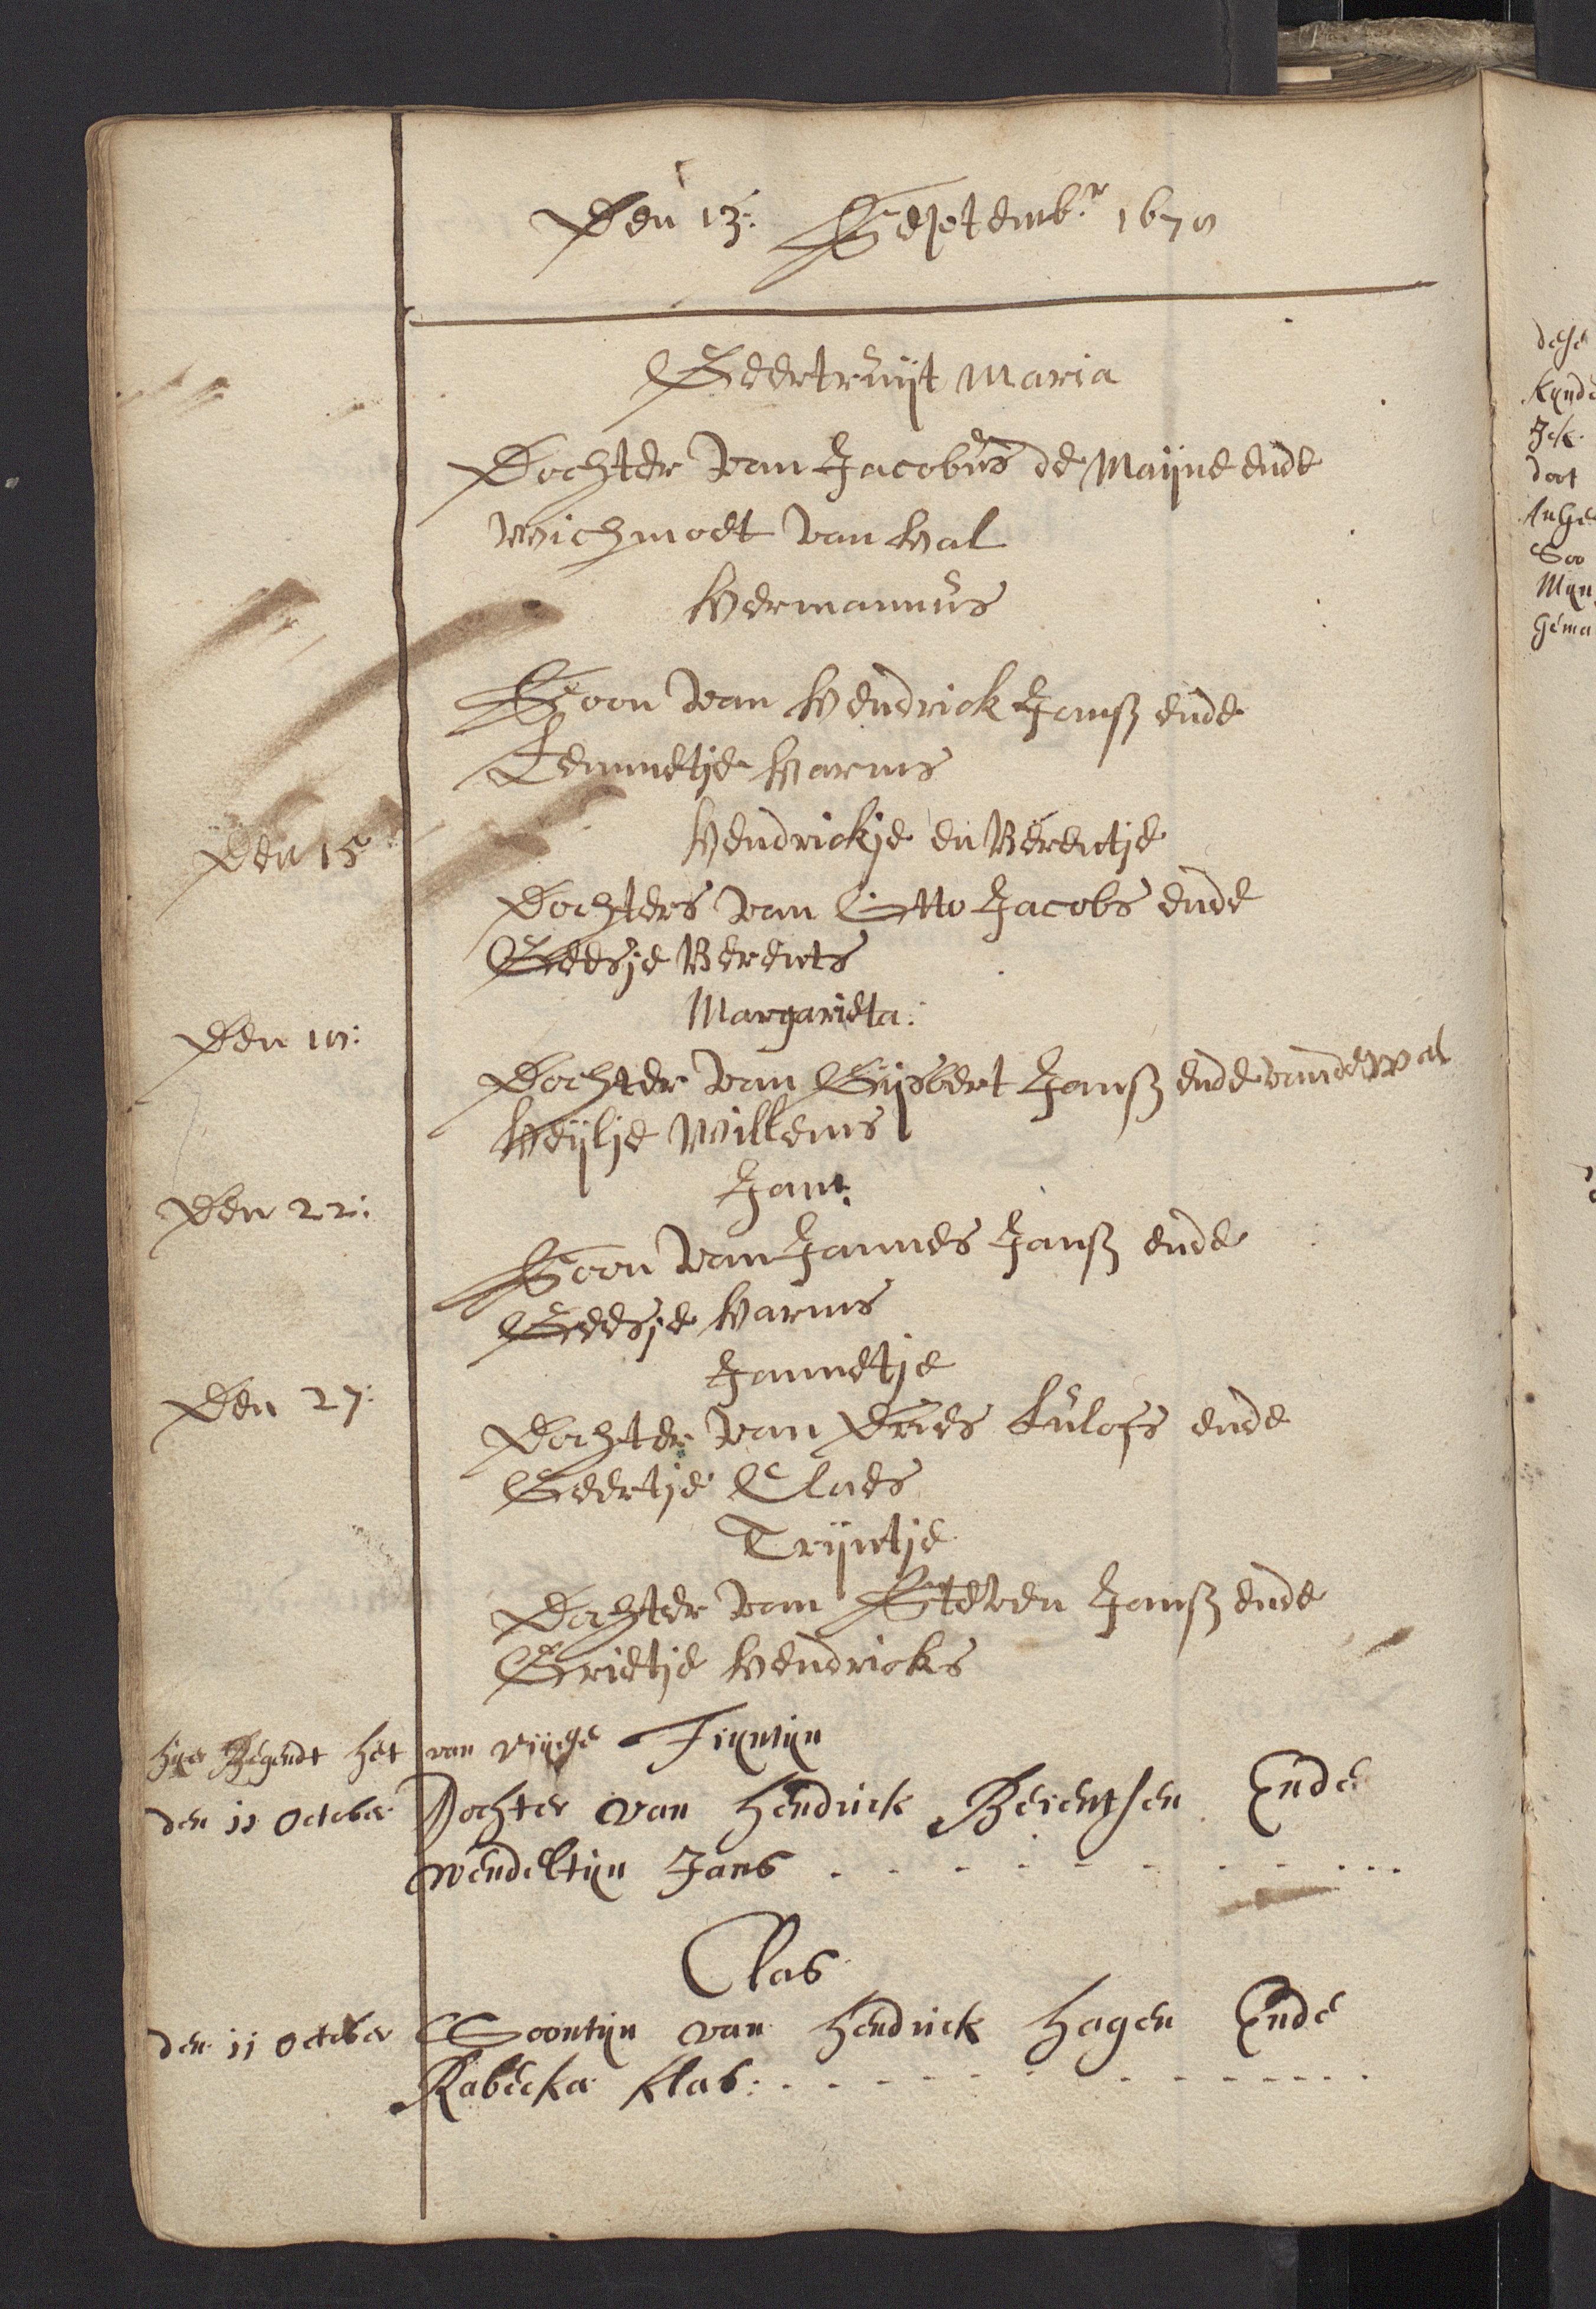 Den 13: Septemb.r 1670
Geertruijt Maria
Dochter van Jacobus de Maijne ende
Wichmoet van Hal
Hermannus
Soon van Hendrick Janß ende
Lemmetje Harms
Den 15
Hendrickje en Berentje
Dochters van Otto Jacobs ende
Geesje Berents
Margarieta:
Den
Dochter van Gijsbert Janß ende vander wal
Heijltje Willems
Jan
Den 22:
Soon van Jannes Janß ende
Geesje Harms
Jannetje
Den 27:
Dochter van Dries Lulofs ende
Geertje Claes
Trijntje
Dochter van Steven Janß ende
Grietje Hendricks
hijer Begendt het van
den 11 October Dochter van Hendrick Berentsen Ende
wendeltijn Jans
Clas
den 11 October Soontijn van Hendrick Hagen Ende
Rabecka Klas:
dese
kynde
Jck
doot
Soo
Gema